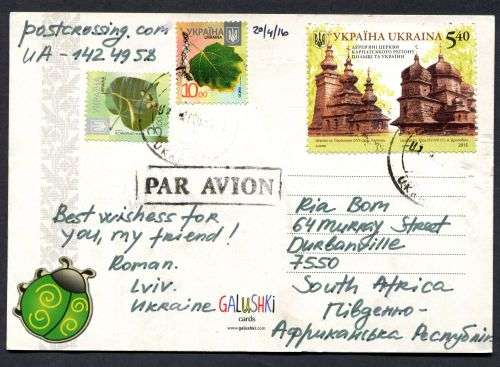 postcrossing.com
UA - 1424958
20/4/16
УКРАЇНА
UKRAINA
10.00
УКРАЇНА UKRAINA 5.40
ДЕРЕВ'ЯНІ ЦЕРКВИ
КАРПАТСЬКОГО РЕГІОНУ
ПОЛЬЩІ ТА УКРАЇНИ
2015
PAR AVION
Best wishess for
you, my friend!
Roman.
Lviv.
Ukraine
GALUSHKi
cards
www.galushki.com
Ria Bom
64 Murray Street
Durbanville
7550
South Africa
Південно-
Африканська Республік